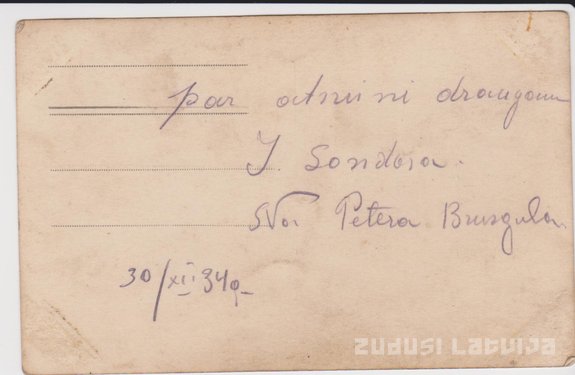 par atmiņi draugam
J. Sondora.
No Petera Brusgula.
30/XII 34g.
ZUDUSI LATVIJA